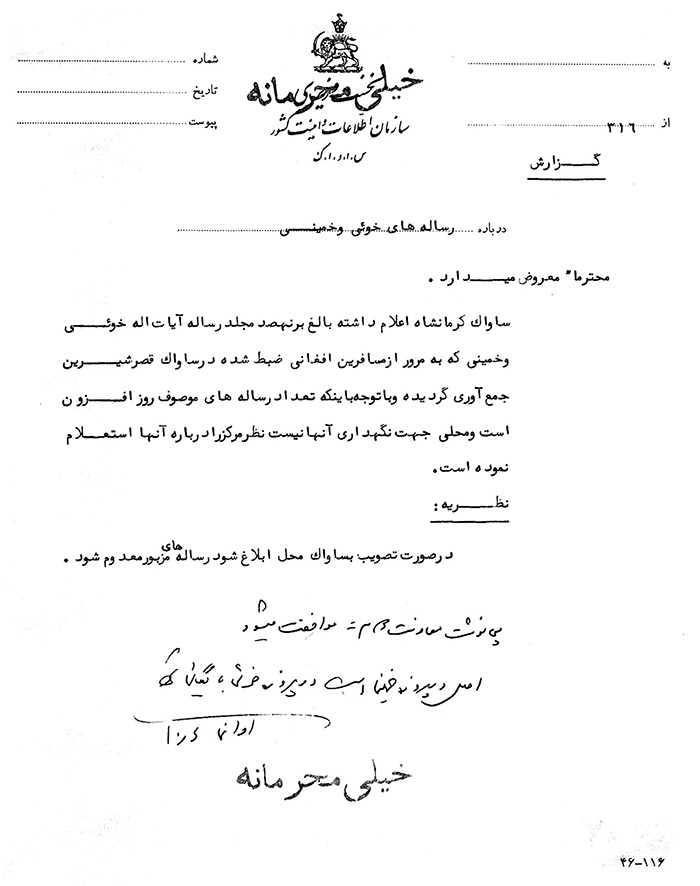 به
شماره
خیلی محرمانه
تاریخ
سازمان اطلاعات و امنیت کشور
از ۳۱۶
پیوست
س.ا.و.ا.ک
گـــزارش
درباره رساله های خوئی وخمینـــی
محترما" معروض میـدارد.
ساواك کرمانشاه اعلام داشته بالغ برنهصد مجلد رساله آیات اله خوئـــی
وخمینی که به مرور ازمسافرین افغانی ضبط شده درساواك قصرشیـــرین
جمع آوری گردیده وباتوجه باینکه تعداد رساله های موصوف روز افـــزون
است ومحلی جهت نگهداری آنهانیست نظرمرکزرادرباره آنها استعـــلام
نموده است.
نظـــریه:
درصورت تصویب بساواك محل ابلاغ شود رساله های مزبورمعدوم شود.
پی نوشت معاونت موافقت میشود
اصل در پرونده خمینی است در پرونده خوئی بایگانی
خیلی محرمانه
۴۶-۱۱۶